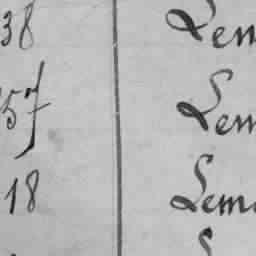 38 Lem
57 Lem
18 Lem